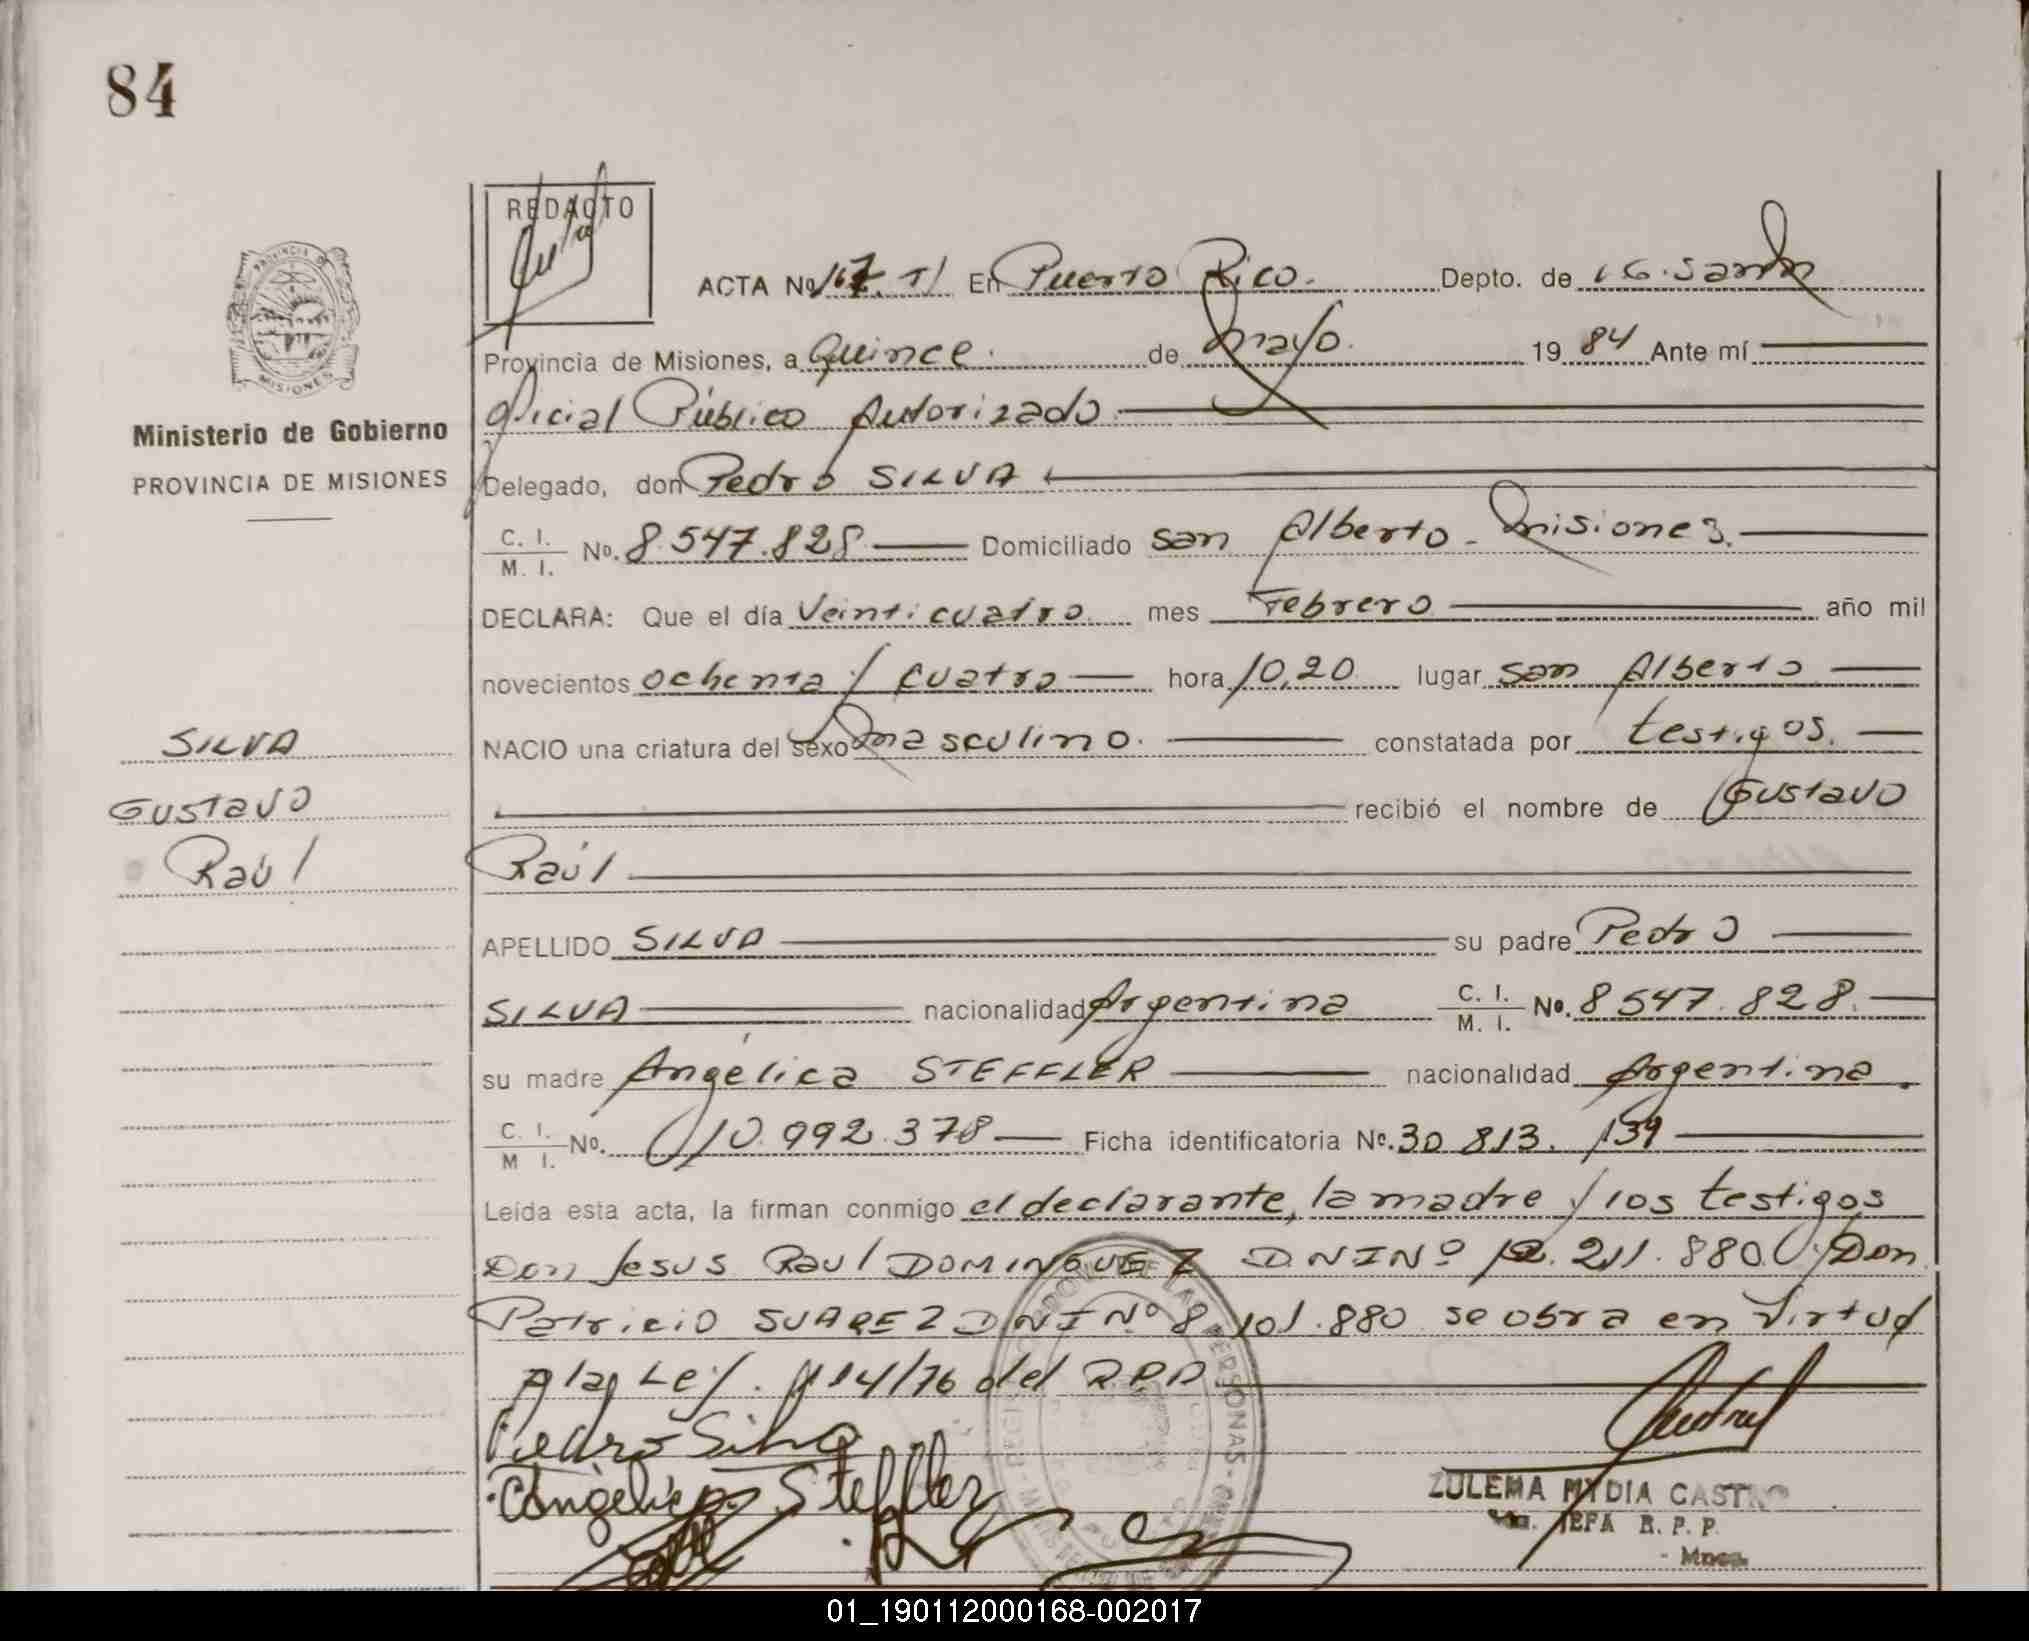 84
REDACTO
ACTA No 167. T/ En Puerto Rico. Depto. de L.G. San M
Provincia de Misiones, a Quince. de mayo. 1984 Ante mí
Ministerio de Gobierno
PROVINCIA DE MISIONES
oficial Público Autorizado.
Delegado, don Pedro SILVA
C. I. / M. I. No. 8.547.828 Domiciliado San Alberto - Misiones.
DECLARA: Que el día Veinticuatro mes Febrero año mil
novecientos ochenta y cuatro hora 10,20 lugar San Alberto
SILVA
Gustavo
Raúl
NACIO una criatura del sexo masculino. constatada por testigos.
recibió el nombre de Gustavo
Raúl
APELLIDO SILVA su padre Pedro
SILVA nacionalidad Argentina C. I. / M. I. No. 8547.828.
su madre Angélica STEFFLER nacionalidad Argentina.
C. I. / M I. No. 10.992.378 Ficha identificatoria No. 30 813. 139
Leída esta acta, la firman conmigo el declarante, la madre y los testigos
Don Jesus Raul DOMINGUEZ D.N.I Nº 12.211.880. y Don
Patricio SUAREZ DNI Nº 8 101.880 se obra en virtud
A la Ley. 114/76 del R.P.P
Pedro Silva
Angelica Steffler
ZULEMA MYDIA CASTRO
JEFA R. P. P.
- Mnes.
01_190112000168-002017